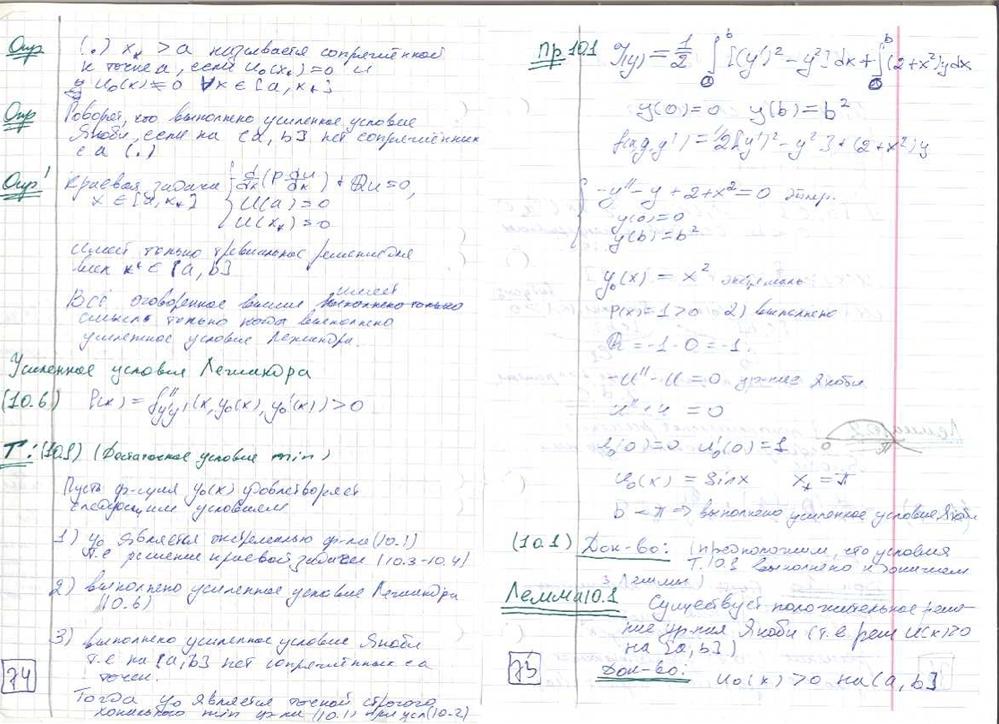 Опр (.) x* > a называется сопряжённой
к точке a, если u₀(x*) = 0 и
u₀(x) ≠ 0 ∀x ∈ [a, x*]
Опр Говорят, что выполнено усиленное условие
Якоби, если на (a, b] нет сопряжённых
с a (.)
Опр' Краевая задача { -d/dx (P du/dx) + Qu = 0,
x ∈ [a, x*] U(a) = 0
U(x*) = 0
имеет только тривиальное решение для
всех x* ∈ (a, b]
имеет
Всё оговоренное выше выполнено только
смысл только когда выполнено
усиленное условие Лежандра.
Усиленное условие Лежандра
(10.6) P(x) = f''y'y'(x, y₀(x), y₀'(x)) > 0
T: (10.1) (Достаточное условие min)
Пусть ф-ция y₀(x) удовлетворяет
следующим условиям
1) y₀ является экстремалью ф-ла (10.1)
т.е решение краевой задачи (10.3-10.4)
2) выполнено усиленное условие Лежандра
(10.6)
3) выполнено усиленное условие Якоби
т.е на (a, b] нет сопряжённых с a
точек.
Тогда y₀ является точкой строгого
min ф-ла (10.1) при усл (10.2)
74
Пр 10.1 J(y) = 1/2 ∫₀ᵇ [(y')² - y²] dx + ∫₀ᵇ (2+x²)y dx
y(0) = 0 y(b) = b²
f(x, y, y') = 1/2[(y')² - y²] + (2+x²)y
{ -y'' - y + 2 + x² = 0
y(0) = 0
y(b) = b²
y₀(x) = x² экстремаль
P(x) = 1 > 0 2) выполнено
Q = -1 - 0 = -1.
-u'' - u = 0 ур-ние Якоби
u'' + u = 0
u₀(0) = 0 u₀'(0) = 1
0 π
u₀(x) = sin x x* = π
b < π ⇒ выполнено усиленное условие Якоби
(10.1) Док-во: (предположим, что условия
Т.10.1 выполнено и докажем
3 леммы)
Лемма 10.1 Существует положительное реше-
ние ур-ния Якоби (т.е реш u(x)>0
на [a, b])
Док-во: u₀(x) > 0 на (a, b]
75